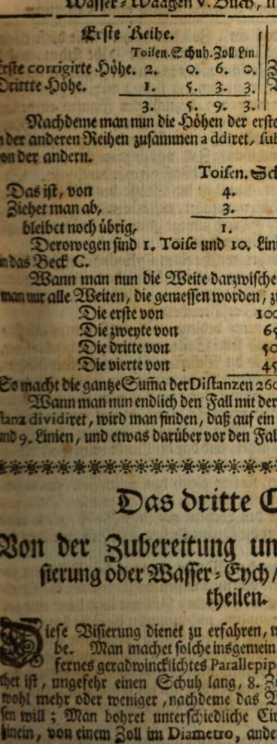 Wasser-Waagen V. Buch, II
Erste Reihe.
Toisen. Schuh. Zoll Lin.
Erste corrigirte Höhe. 2. 0. 6. 0.
Drittte Höhe. 1. 5. 3. 3.
3. 5. 9. 3.
Nachdeme man nun die Höhen der erste
der anderen Reihen zusammen addiret, sub
von der andern.
Toisen. Sch
Das ist, von 4.
Ziehet man ab, 3.
bleibet noch übrig, 1.
Derowegen sind 1. Toise und 10. Lin
in das Beck C.
Wann man nun die Weite darzwische
man nur alle Weiten, die gemessen worden, z
Die erste von 100
Die zweyte von 65
Die dritte von 50
Die vierte von 45
So macht die gantze Suma der Distanzen 260
Wann man nun endlich den Fall mit der
stanz dividiret, wird man finden, daß auf ein
und 9. Linien, und etwas darüber vor den Fal
Das dritte C
Von der Zubereitung un
sierung oder Wasser-Eych/
theilen.
Diese Visierung dienet zu erfahren, w
be. Man machet solche insgemein
fernes geradwincklichtes Parallepip
chet ist, ungefehr einen Schuh lang, 8. Zo
wohl mehr oder weniger, nachdeme das W
sen will; Man bohret unterschiedliche Cir
hinein, von einem Zoll im Diametro, ande